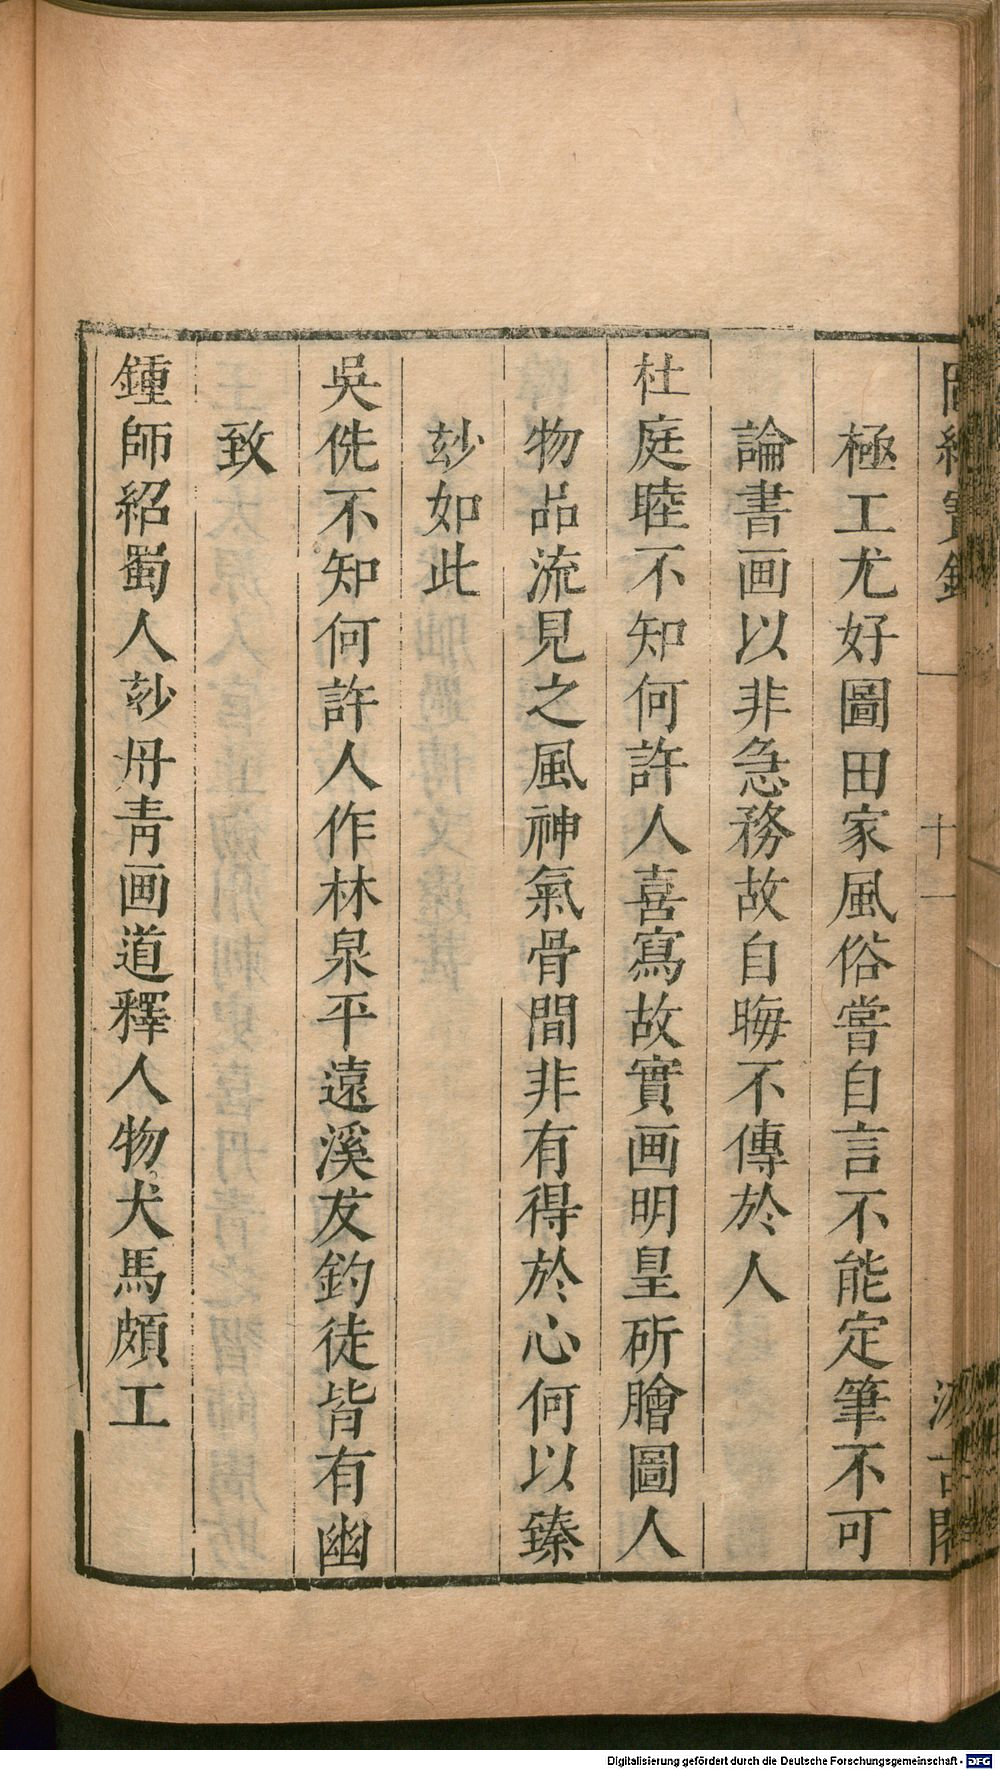 圖繪寶鑑 一 十一 汲古閣
極工尤好圖田家風俗嘗自言不能定筆不可
論書画以非急務故自晦不傳於人
杜庭睦不知何許人喜寫故實画明皇斫膾圖人
物品流見之風神氣骨間非有得於心何以臻
玅如此
吳侁不知何許人作林泉平遠溪友釣徒皆有幽
致
鍾師紹蜀人玅丹青画道釋人物犬馬頗工
Digitalisierung gefördert durch die Deutsche Forschungsgemeinschaft - DFG